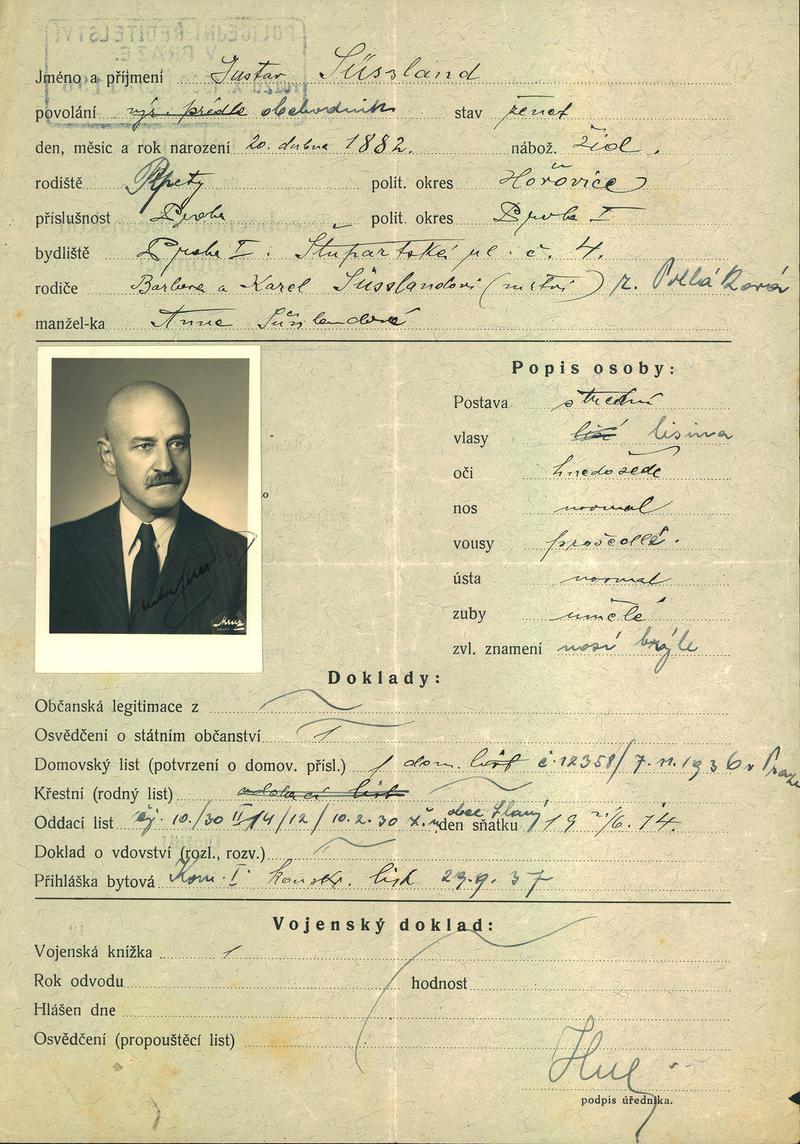 POLICEJNÍ ŘEDITELSTVÍ
V PRAZE
Jméno a příjmení Gustav Süssland
povolání výr. prádla obchodník stav ženat
den, měsíc a rok narození 20. dubna 1882. nábož. žid.
rodiště Rpety polit. okres Hořovice
příslušnost Praha polit. okres Praha I
bydliště Praha I. Štupartská ul. č. 4.
rodiče Barbora a Karel Süsslandovi (mrtvi) r. Polláková
manžel-ka Anna Süsslandová
Popis osoby:
Postava střední
vlasy lisina
oči hnedošedé
nos normal
vousy prošedlé.
ústa normal
zuby umělé
zvl. znamení nosí brýle
Doklady:
Občanská legitimace z
Osvědčení o státním občanství
Domovský list (potvrzení o domov. přísl.) dom. list č. 12358/7.11.1936 v Praze
Křestní (rodný list)
Oddací list čj. 10./30 II/14/12/10.2.30 obce Slaný den sňatku
Doklad o vdovství (rozl., rozv.)
Přihláška bytová Kom. I. konskr. list 29.9.37
Vojenský doklad:
Vojenská knížka
Rok odvodu hodnost
Hlášen dne
Osvědčení (propouštěcí list)
podpis úředníka.